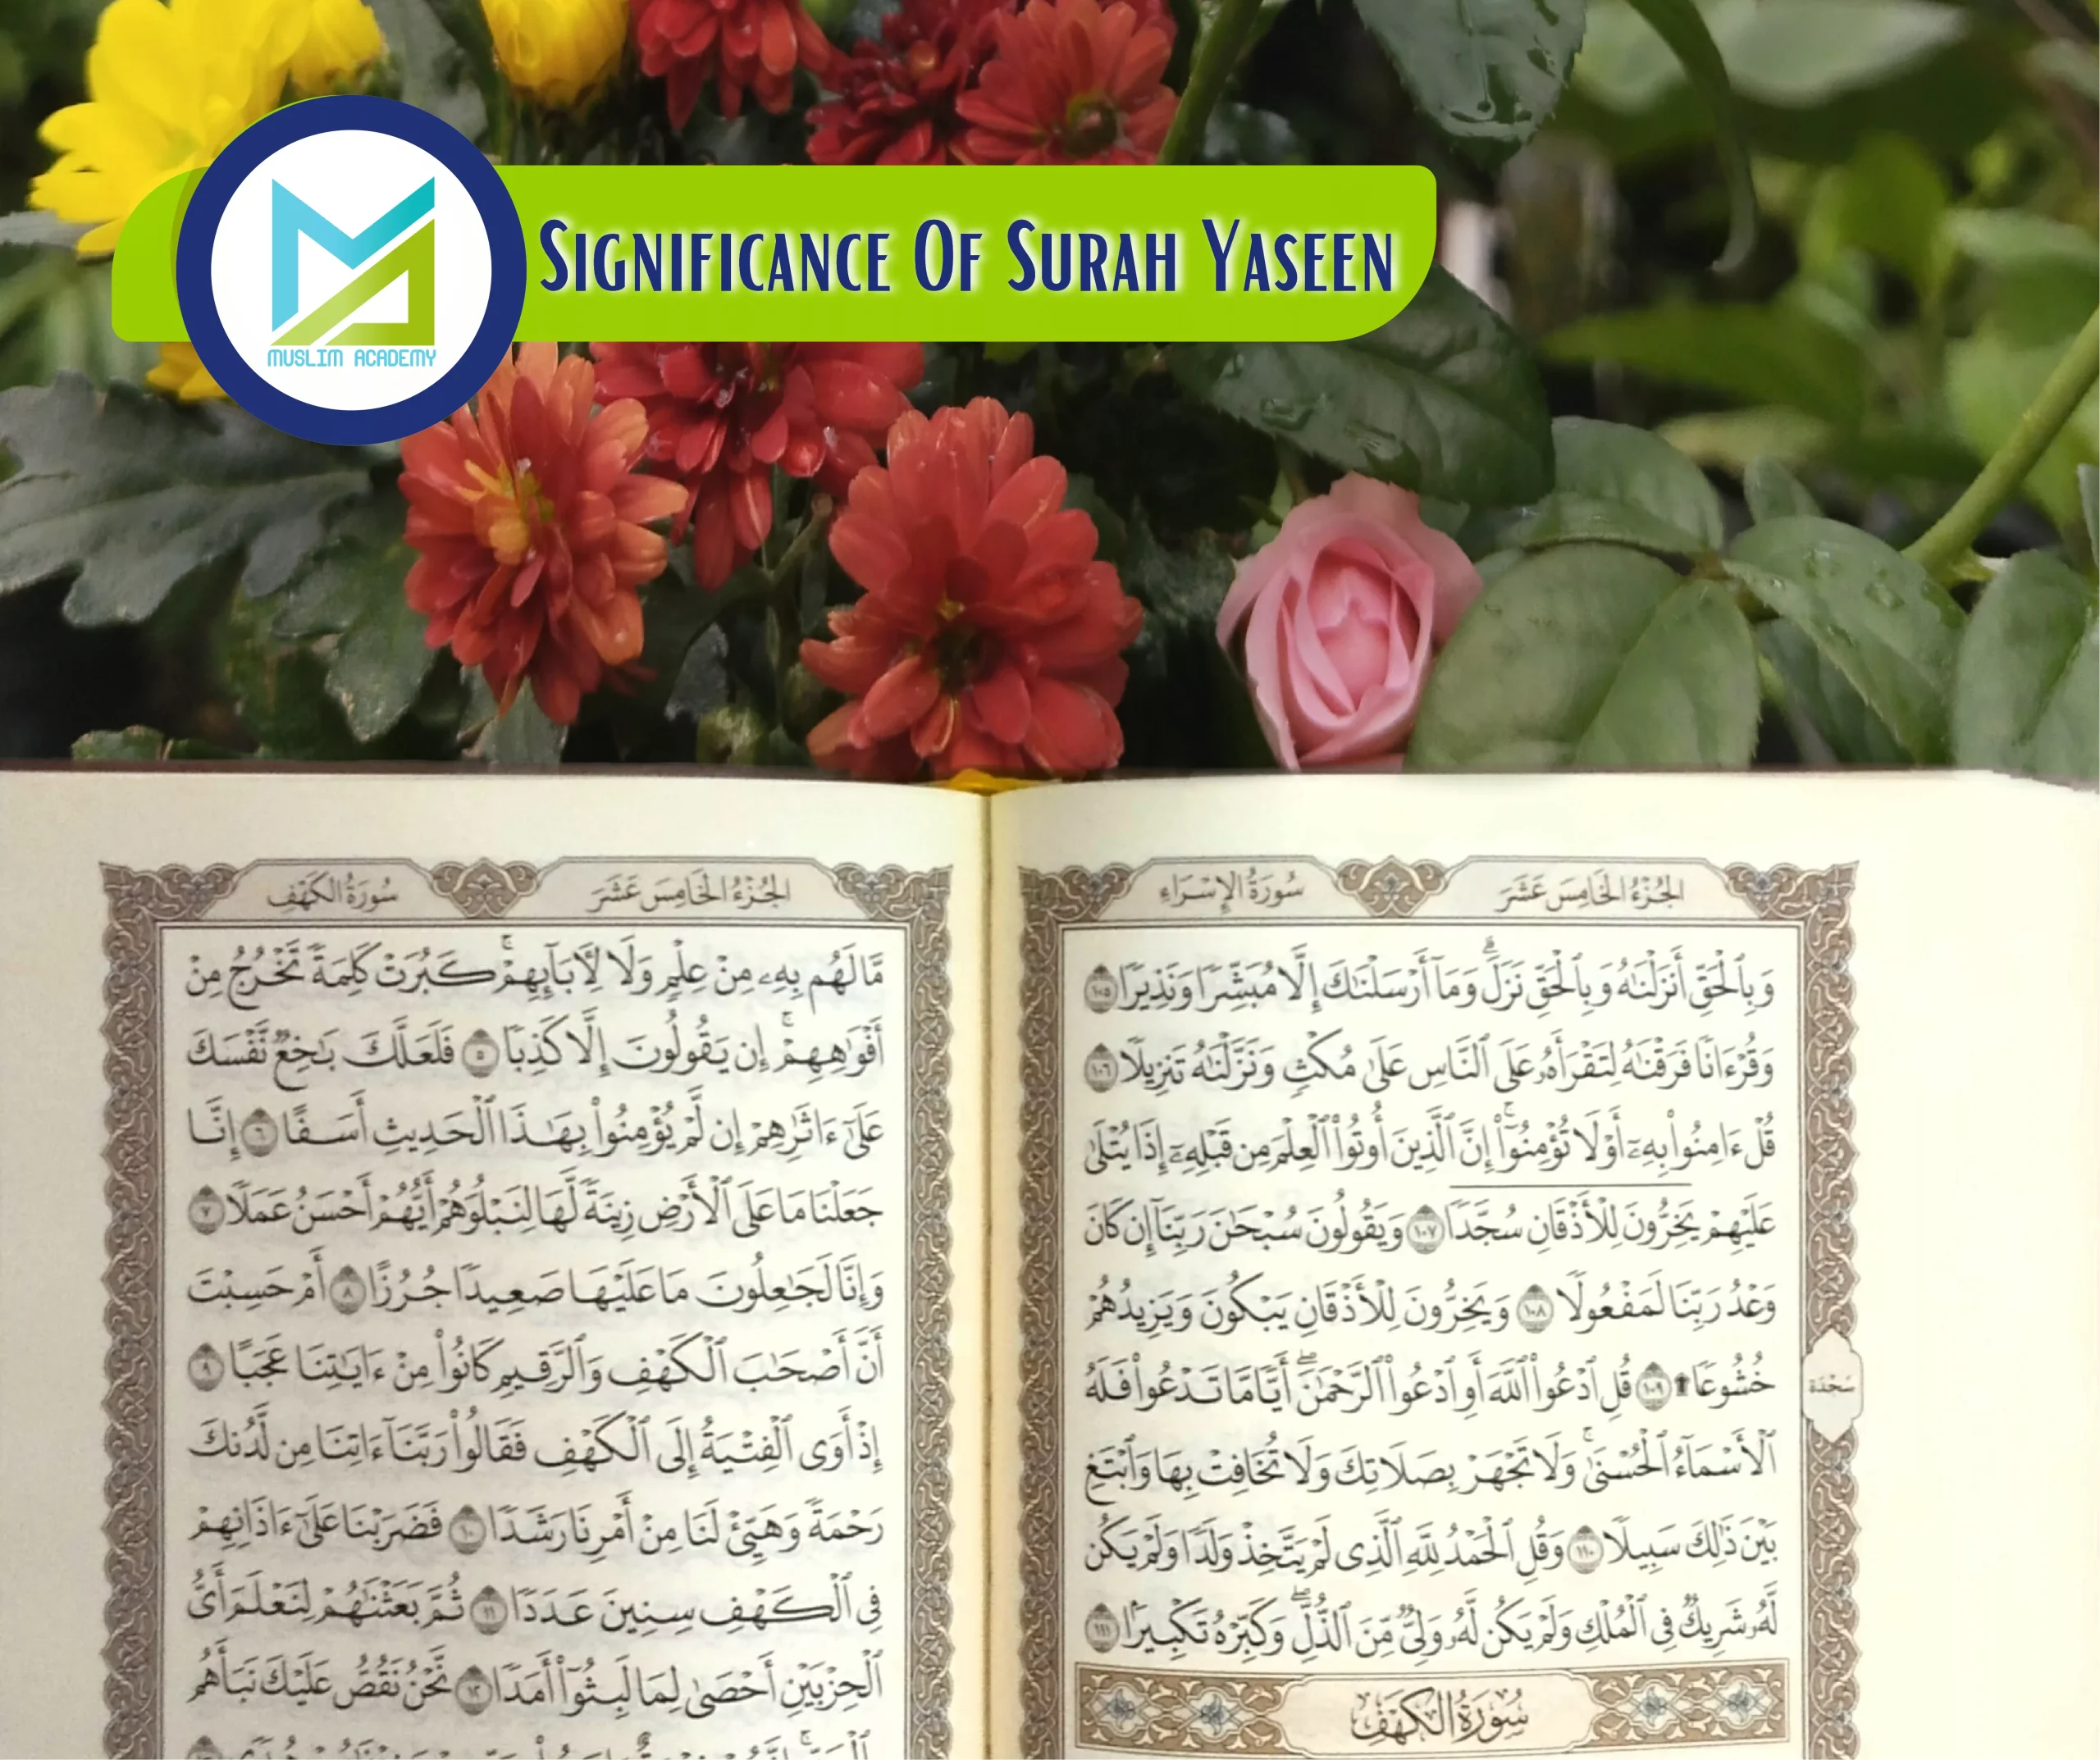 MUSLIM ACADEMY
Significance Of Surah Yaseen
الجُزْءُ الخَامِسَ عَشَرَ
سُورَةُ الإِسْرَاءِ
وَبِٱلْحَقِّ أَنزَلْنَٰهُ وَبِٱلْحَقِّ نَزَلَۗ وَمَآ أَرْسَلْنَٰكَ إِلَّا مُبَشِّرًا وَنَذِيرًا ١٠٥
وَقُرْءَانًا فَرَقْنَٰهُ لِتَقْرَأَهُۥ عَلَى ٱلنَّاسِ عَلَىٰ مُكْثٍ وَنَزَّلْنَٰهُ تَنزِيلًا ١٠٦
قُلْ ءَامِنُوا۟ بِهِۦٓ أَوْ لَا تُؤْمِنُوٓا۟ۚ إِنَّ ٱلَّذِينَ أُوتُوا۟ ٱلْعِلْمَ مِن قَبْلِهِۦٓ إِذَا يُتْلَىٰ
عَلَيْهِمْ يَخِرُّونَ لِلْأَذْقَانِ سُجَّدًا ١٠٧ وَيَقُولُونَ سُبْحَٰنَ رَبِّنَآ إِن كَانَ
وَعْدُ رَبِّنَا لَمَفْعُولًا ١٠٨ وَيَخِرُّونَ لِلْأَذْقَانِ يَبْكُونَ وَيَزِيدُهُمْ
خُشُوعًا ۩ ١٠٩ قُلِ ٱدْعُوا۟ ٱللَّهَ أَوِ ٱدْعُوا۟ ٱلرَّحْمَٰنَۖ أَيًّا مَّا تَدْعُوا۟ فَلَهُ
سَجْدَة
ٱلْأَسْمَآءُ ٱلْحُسْنَىٰۚ وَلَا تَجْهَرْ بِصَلَاتِكَ وَلَا تُخَافِتْ بِهَا وَٱبْتَغِ
بَيْنَ ذَٰلِكَ سَبِيلًا ١١٠ وَقُلِ ٱلْحَمْدُ لِلَّهِ ٱلَّذِى لَمْ يَتَّخِذْ وَلَدًا وَلَمْ يَكُن
لَّهُۥ شَرِيكٌ فِى ٱلْمُلْكِ وَلَمْ يَكُن لَّهُۥ وَلِىٌّ مِّنَ ٱلذُّلِّۖ وَكَبِّرْهُ تَكْبِيرًۢا ١١١
سُورَةُ الكَهْفِ
الجُزْءُ الخَامِسَ عَشَرَ
سُورَةُ الكَهْفِ
مَّا لَهُم بِهِۦ مِنْ عِلْمٍ وَلَا لِأَبَآئِهِمْۚ كَبُرَتْ كَلِمَةً تَخْرُجُ مِنْ
أَفْوَٰهِهِمْۚ إِن يَقُولُونَ إِلَّا كَذِبًا ٥ فَلَعَلَّكَ بَٰخِعٌ نَّفْسَكَ
عَلَىٰٓ ءَاثَٰرِهِمْ إِن لَّمْ يُؤْمِنُوا۟ بِهَٰذَا ٱلْحَدِيثِ أَسَفًا ٦ إِنَّا
جَعَلْنَا مَا عَلَى ٱلْأَرْضِ زِينَةً لَّهَا لِنَبْلُوَهُمْ أَيُّهُمْ أَحْسَنُ عَمَلًا ٧
وَإِنَّا لَجَٰعِلُونَ مَا عَلَيْهَا صَعِيدًا جُرُزًا ٨ أَمْ حَسِبْتَ
أَنَّ أَصْحَٰبَ ٱلْكَهْفِ وَٱلرَّقِيمِ كَانُوا۟ مِنْ ءَايَٰتِنَا عَجَبًا ٩
إِذْ أَوَى ٱلْفِتْيَةُ إِلَى ٱلْكَهْفِ فَقَالُوا۟ رَبَّنَآ ءَاتِنَا مِن لَّدُنكَ
رَحْمَةً وَهَيِّئْ لَنَا مِنْ أَمْرِنَا رَشَدًا ١٠ فَضَرَبْنَا عَلَىٰٓ ءَاذَانِهِمْ
فِى ٱلْكَهْفِ سِنِينَ عَدَدًا ١١ ثُمَّ بَعَثْنَٰهُمْ لِنَعْلَمَ أَىُّ
ٱلْحِزْبَيْنِ أَحْصَىٰ لِمَا لَبِثُوٓا۟ أَمَدًا ١٢ نَّحْنُ نَقُصُّ عَلَيْكَ نَبَأَهُم